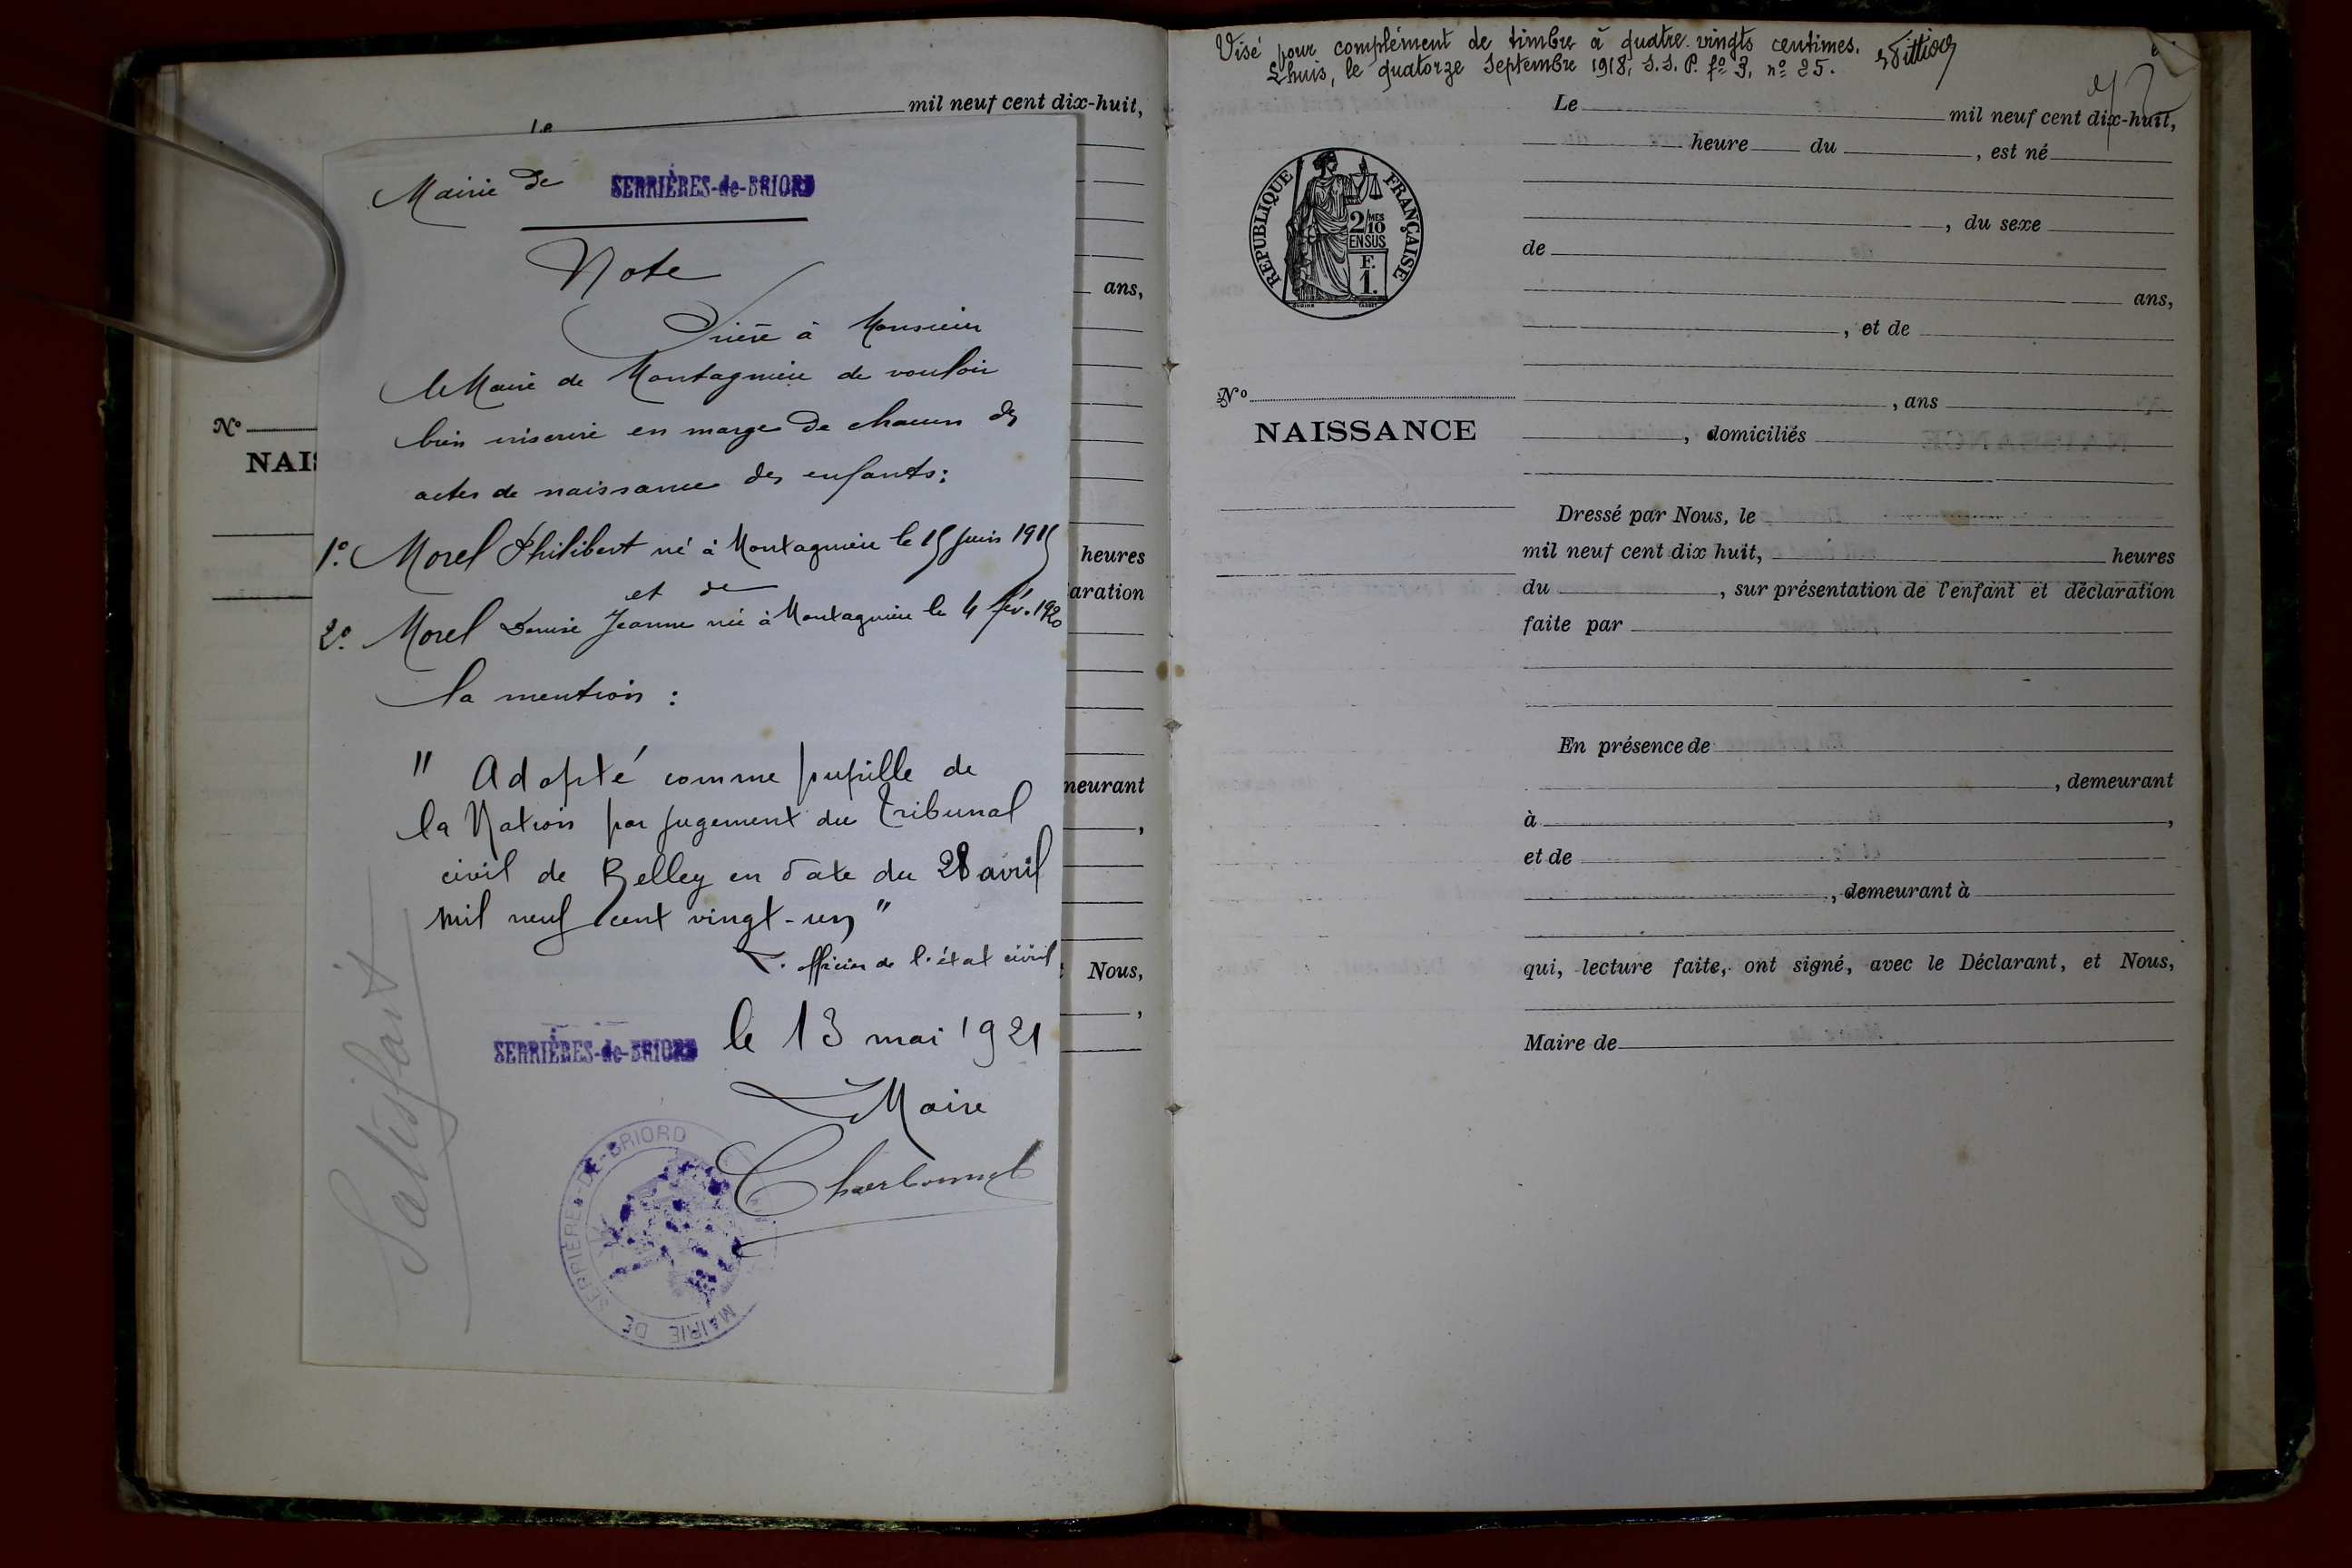 mil neuf cent dix-huit,
Le
ans,
N°
NAIS
heures
aration
meurant
,
Nous,
,
Mairie de SERRIÈRES-de-BRIORD
Note
Prière à Monsieur
le Maire de Montagnieu de vouloir
bien inscrire en marge de chacun des
actes de naissance des enfants:
1º. Morel Philibert né à Montagnieu le 15 Juin 1915
et de
2º. Morel Denise Jeanne née à Montagnieu le 4 fév. 1920
la mention :
" Adopté comme pupille de
la Nation par jugement du Tribunal
civil de Belley en date du 28 avril
mil neuf cent vingt-un"
L'officier de l'état civil
SERRIÈRES-de-BRIORD le 13 mai 1921
Maire
Charbonnet
MAIRIE DE SERRIÈRES-DE-BRIORD
Satisfait
Visé pour complément de timbre à quatre-vingts centimes.
Lhuis, le quatorze Septembre 1918, S.S.P. fº 3, nº 25.
Le mil neuf cent dix-huit,
heure du , est né
, du sexe
de
ans,
, et de
, ans
, domiciliés
RÉPUBLIQUE FRANÇAISE
2/10 MES
EN SUS
F.
1.
N°
NAISSANCE
Dressé par Nous, le
mil neuf cent dix huit, heures
du , sur présentation de l'enfant et déclaration
faite par
En présence de
, demeurant
à ,
et de
, demeurant à
qui, lecture faite, ont signé, avec le Déclarant, et Nous,
Maire de